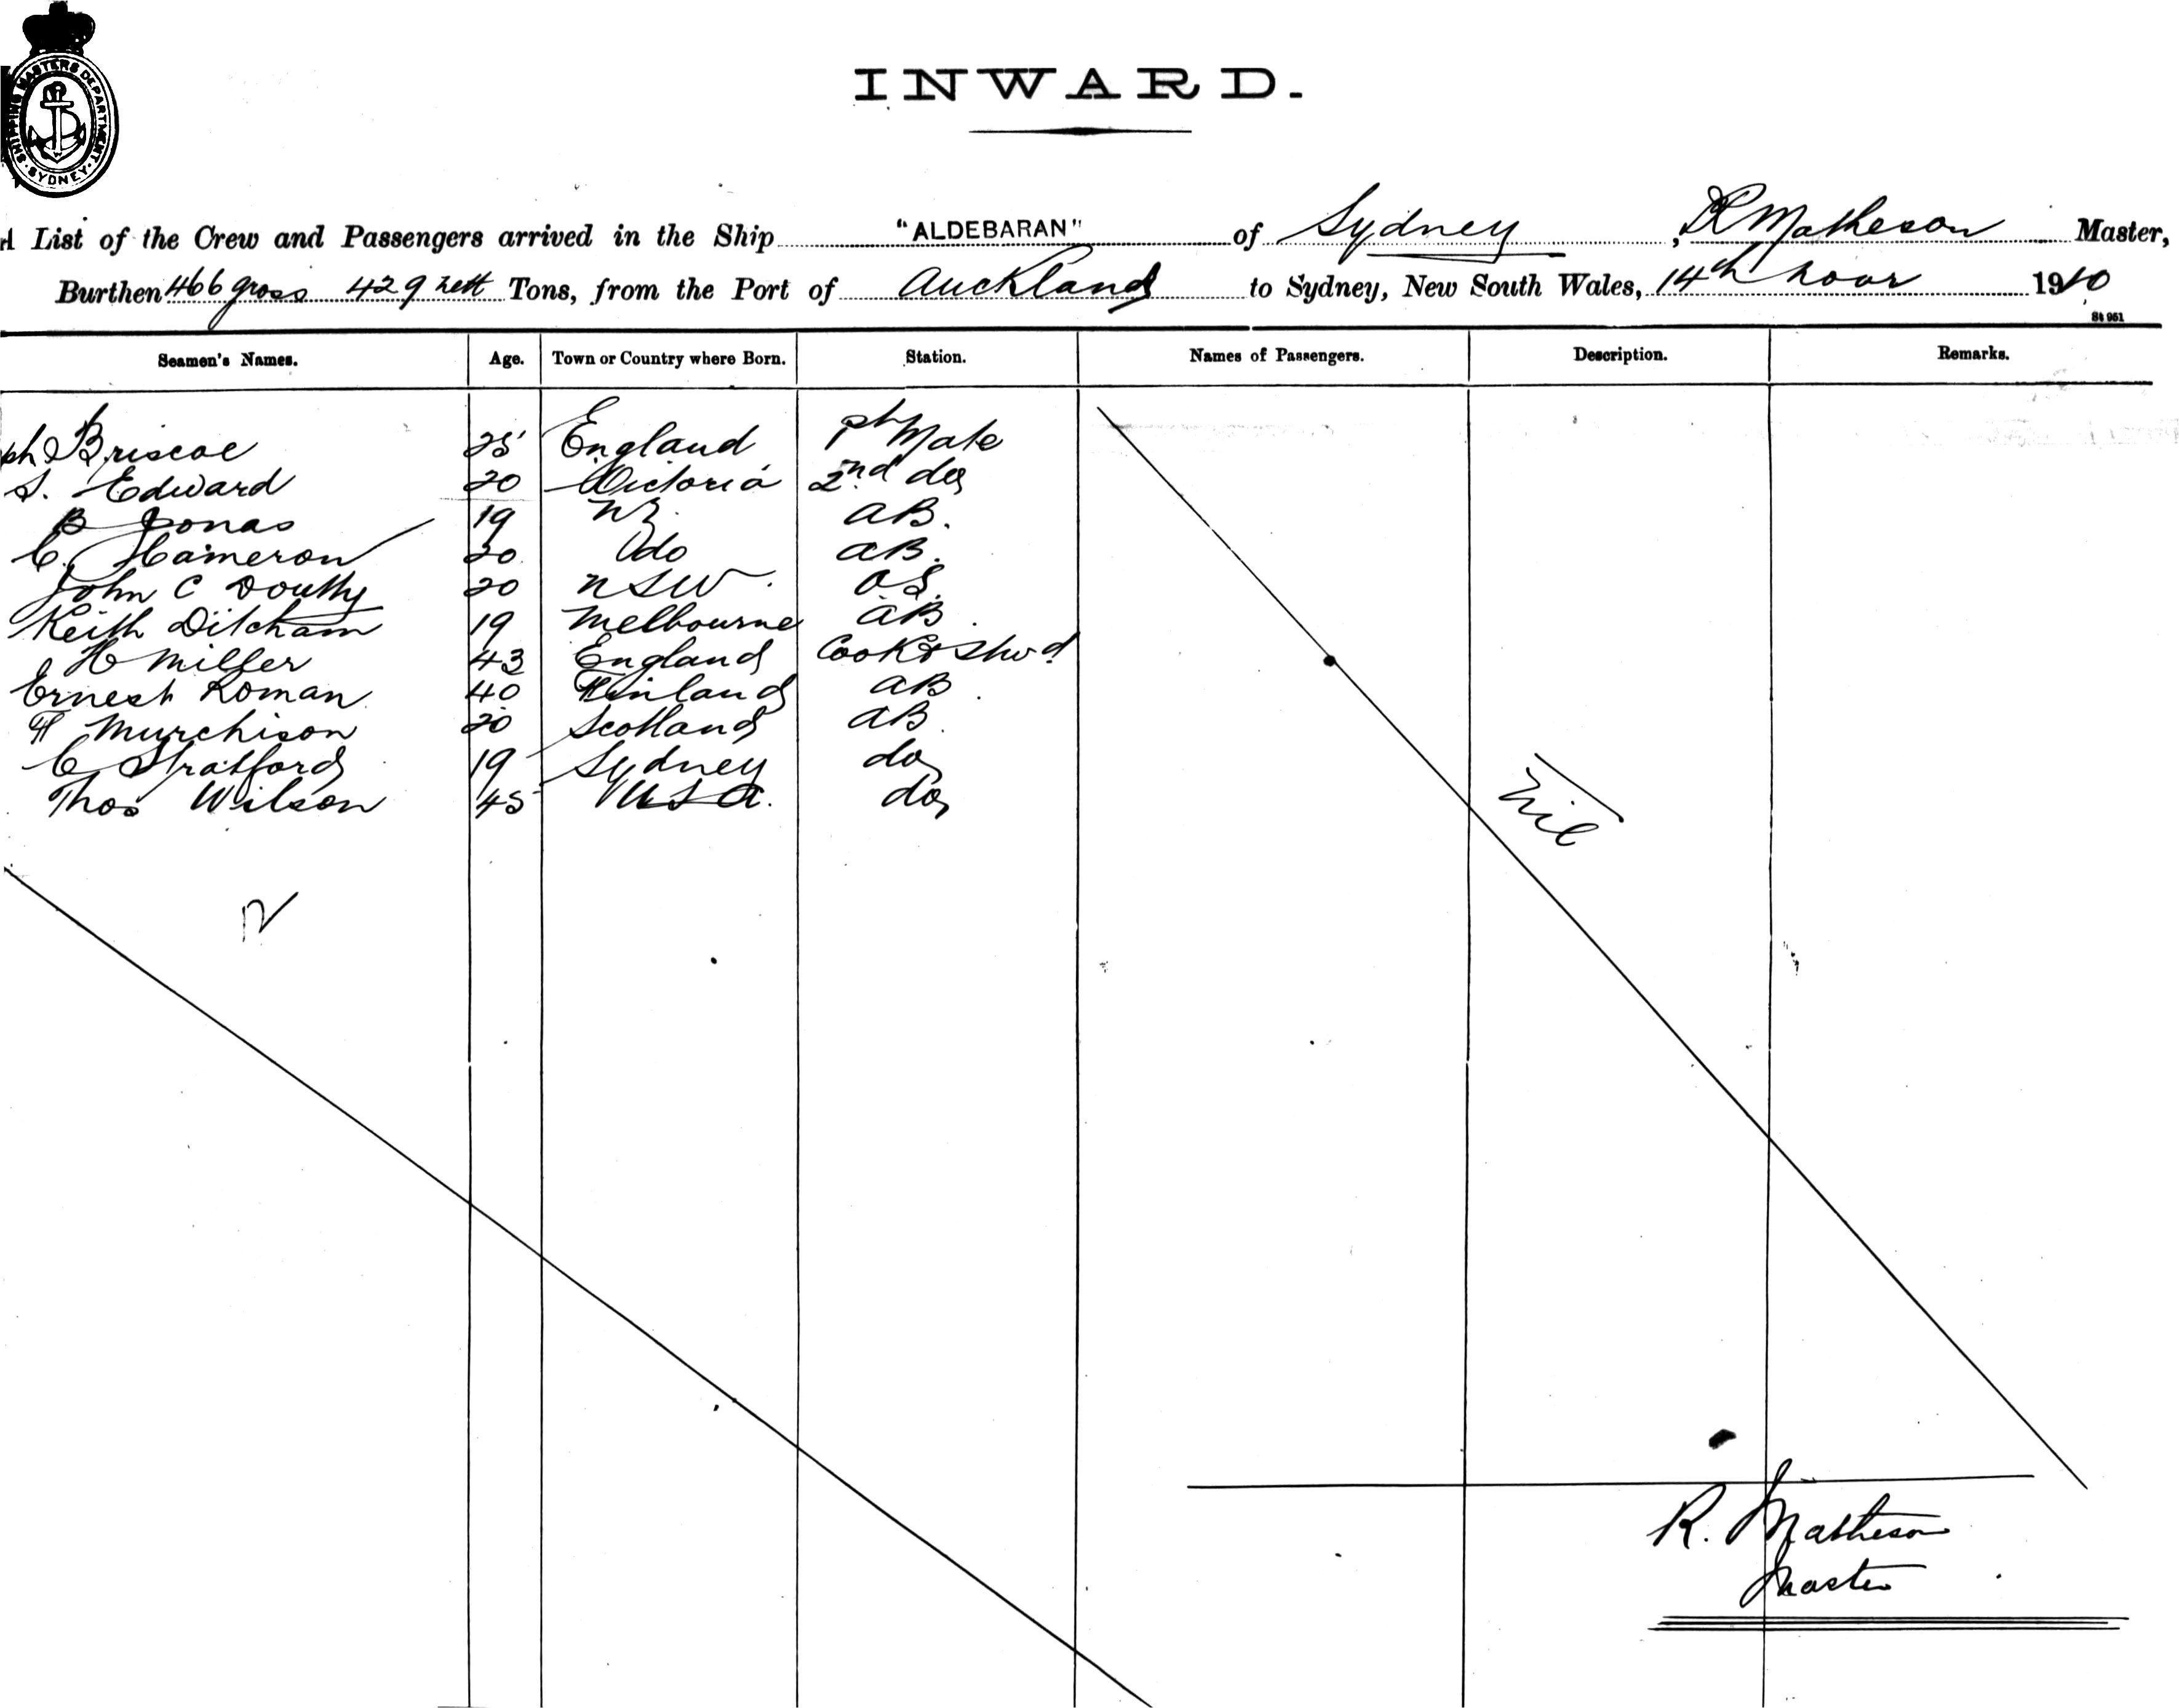 SHIPPING MASTERS DEPARTMENT · SYDNEY ·
INWARD.
A List of the Crew and Passengers arrived in the Ship "ALDEBARAN" of Sydney, R Matheson Master,
Burthen 466 gross 429 nett Tons, from the Port of Auckland to Sydney, New South Wales, 14th Novr 1910
St 951
Seamen's Names. Age. Town or Country where Born. Station. Names of Passengers. Description. Remarks.
ph Briscoe 25 England 1st Mate
S. Edward 20 Victoria 2nd do
B Jonas 19 NZ. AB.
C. Cameron 20 do AB.
John C Doutty 20 NSW. OS.
Keith Ditcham 19 Melbourne AB.
H Miller 43 England Cook & Stwd
Ernest Roman 40 Finland AB.
Murchison 20 Scotland AB.
C Stratford 19 Sydney do
Thos Wilson 45 USA. do
Nil
12
R. Matheson
Master